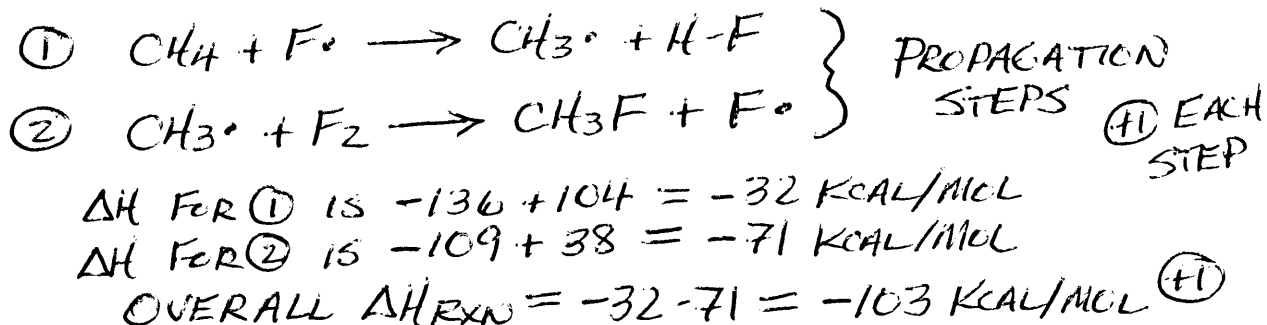 ① CH4 + F• ⟶ CH3• + H-F
② CH3• + F2 ⟶ CH3F + F•
} PROPAGATION
STEPS
(+1) EACH
STEP
ΔH FOR ① IS -136 + 104 = -32 KCAL/MOL
ΔH FOR ② IS -109 + 38 = -71 KCAL/MOL
OVERALL ΔHRXN = -32 - 71 = -103 KCAL/MOL (+1)